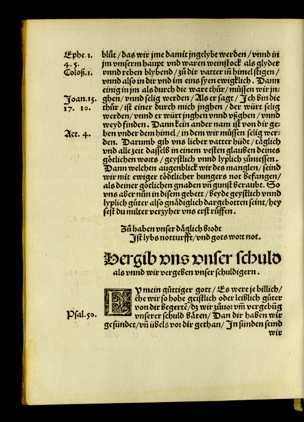 Ephe. 1.
4. 5.
Coloss. 1.
Joan. 15.
17. 10.
Act. 4.
Psal. 50.
blüt / das wir jme damit jngelybt werden / vnnd in
jm vnserm haupt vnd waren weinstock als glyder
vnnd reben blybend / zů dir vatter im himel stigen /
vnnd also in dir vnd im eins syen ewigklich. Dann
einig in jm als durch die ware thür / müssen wir jn
ghen / vnnd selig werden / Als er sagt / Ich bin die
thür / ist euch jmmer durch mich jnghen / der würt selig
werden / vnnd er würt jnghen vnnd vßghen / vnnd
weyd finden. Dann kein ander nam ist von dir ge-
ben vnder dem himel / in dem wir müssen selig wer
den. Darumb gib vns lieber vatter hüt / täglich
vnd alle zeit dasselb in einem vesten glauben deines
götlichen worts / geystlich vnnd lyplich zůniessen.
Dann welchen augenblick wir des manglen / seind
wir mit ewiger tödtlicher hungers not befangen /
als deiner götlichen gnaden vnd gunst beraubt. So
vns aber nun in disem gebett / beyde geystlich vnnd
lyplich güter also gnädiglich dargebotten seint / hey
sest du mitler verzyher vns erst rüffen.
Zů haben vnser däglich brodt
Ist lybs notturfft / vnd gots wort not.
Vergib vns vnser schuld
als vnnd wir vergeben vnser schuldigern.
Ey mein gütiger gott / Es were je billich /
ehe wir so hohe geistlich oder leiblich güter
von dir begerē / dz wir zůuor vm̄ vergebūg
vnserer schuld bäten / Dan dir haben wir
gesündet / vn̄ übels vor dir gethan / In sünden seind
wir